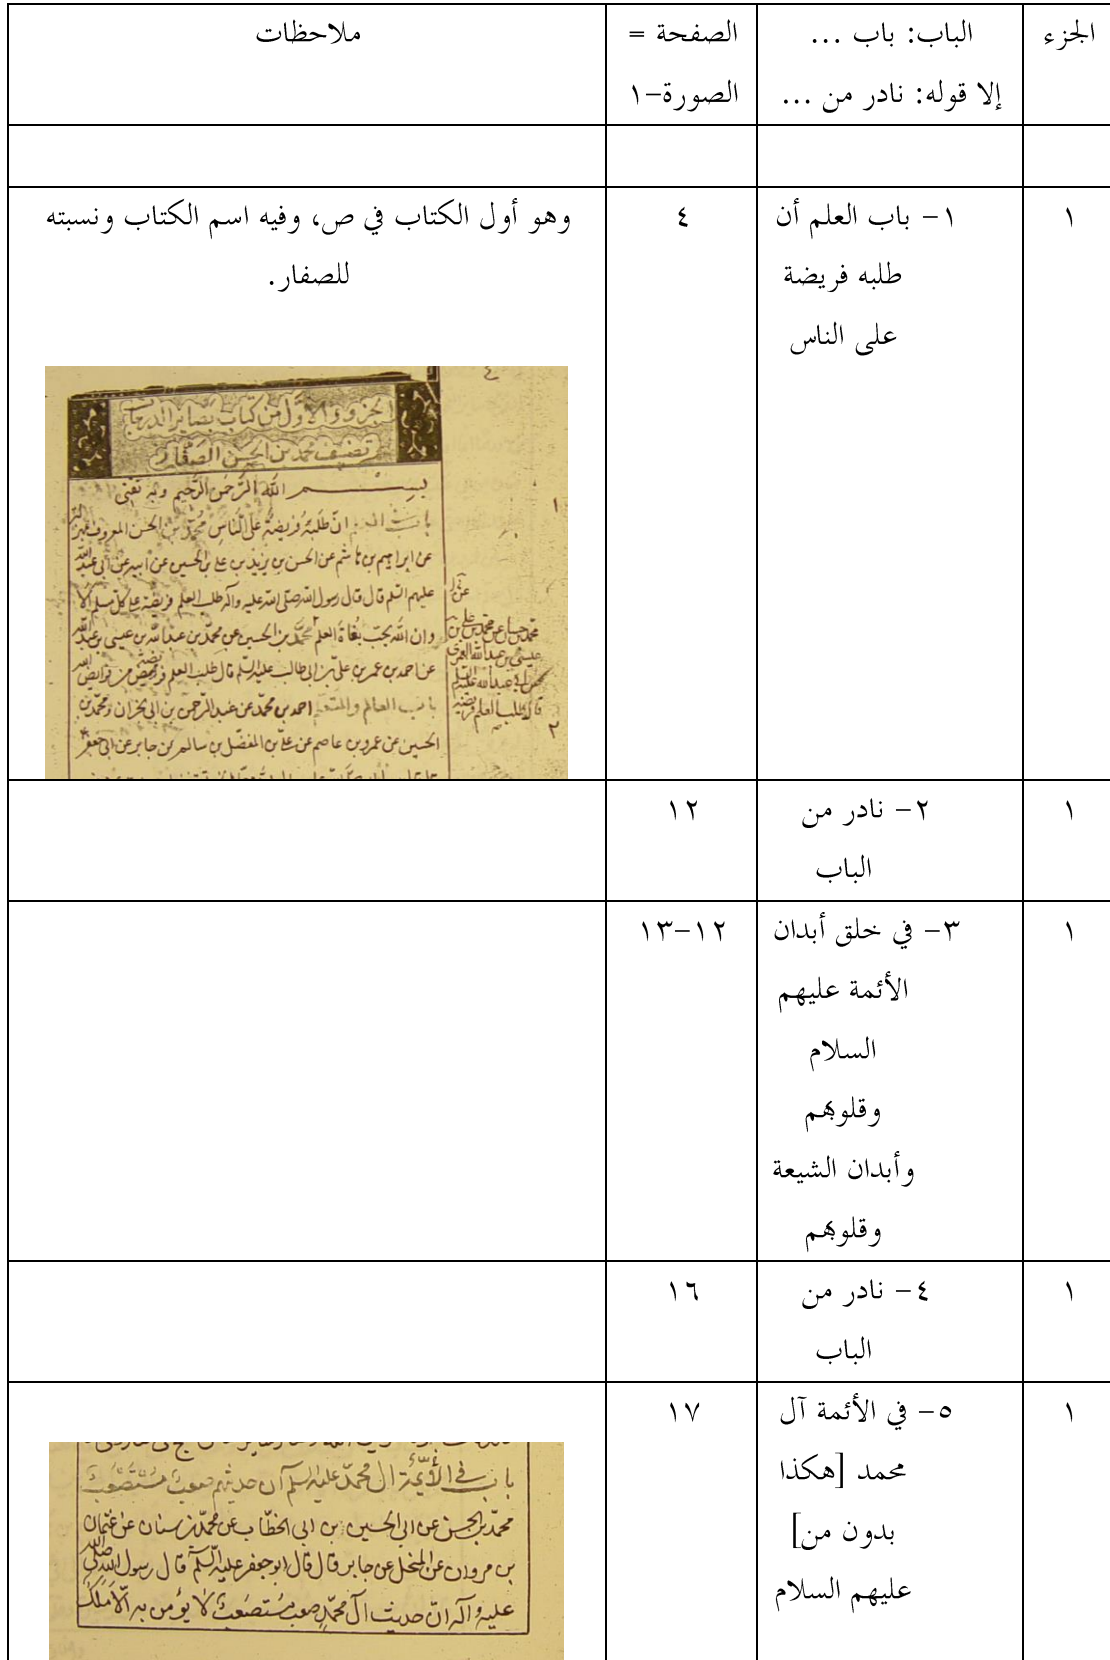 الجزء
الباب: باب ...
إلا قوله: نادر من ...
الصفحة =
الصورة-١
ملاحظات
١
١- باب العلم أن
طلبه فريضة
على الناس
٤
وهو أول الكتاب في ص، وفيه اسم الكتاب ونسبته
للصفار.
الجزو والاوّل من كتاب بصاير الدرجات
تصنيف محمد بن الحسن الصفّار
بسم الله الرّحمن الرّحيم وبه ثقتي
باب العلم انّ طلبه فريضة على النّاس محمّد بن الحسن المعروف
عن ابراهيم بن هاشم عن الحسن بن يزيد بن على بن الحسين عن ابيه عن ابي عبد الله
عليهم السّلم قال قال رسول الله صلّى الله عليه وآله طلب العلم فريضة على كلّ مسلم الا
وان الله يحبّ بغاة العلم محمّد بن الحسين عن محمّد بن عبد الله بن عيسى بن عبد الله
عن احمد بن عمر بن علي بن ابي طالب عليه السّلم قال طلب العلم فريضة من فرايض الله
باب العالم والمتعلم احمد بن محمّد عن عبد الرّحمن بن ابي نجران ومحمّد بن
الحسين عن عمرو بن عاصم عن المفضّل بن سالم عن جابر عن ابي جعفر
١
٢- نادر من
الباب
١٢
١
٣- في خلق أبدان
الأئمة عليهم
السلام
وقلوبهم
وأبدان الشيعة
وقلوبهم
١٢-١٣
١
٤- نادر من
الباب
١٦
١
٥- في الأئمة آل
محمد [هكذا
بدون من]
عليهم السلام
١٧
باب في الأئمّة ال محمّد عليه السلم ان حديثهم صعب مستصعب
محمّد بن الحسن عن ابي الحسين بن ابي الخطّاب عن محمّد بن سنان عن عثمان
بن مروان عن المنخل عن جابر قال قال ابو جعفر عليه السّلم قال رسول الله صلى
عليه وآله انّ حديث آل محمّد صعب مستصعب لا يؤمن به الّا ملك